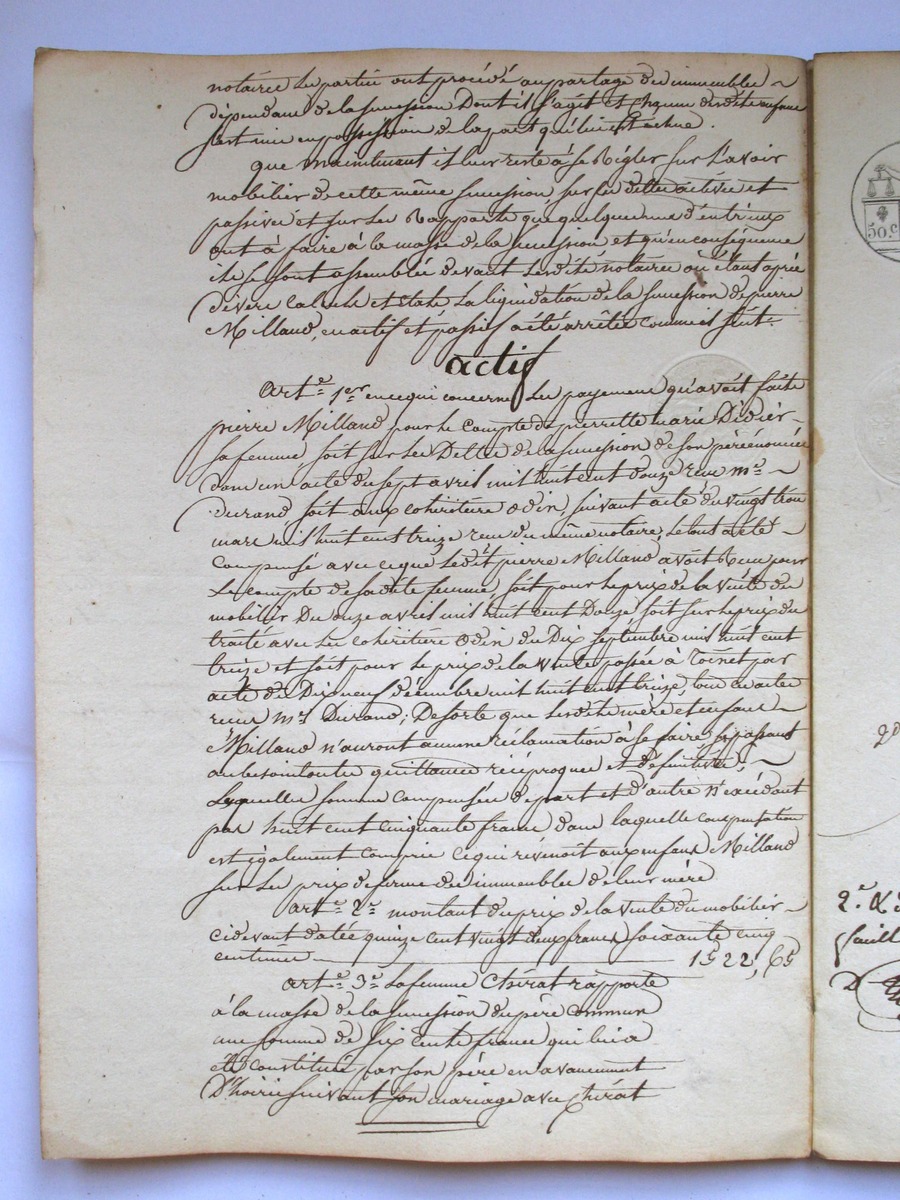 notaires les parties ont procédé au partage des immeubles
dépendans de la succession Dont il s'agit et chacune desdits enfans
s'est mis en possession de la part qui lui est échue.
que maintenant il leur reste à se Règler sur L'avoir
mobilier de cette même succession, sur les dettes actives et
passives et sur les Rapports que quelques uns d'entr'eux
ont à faire à la masse de la succession et qu'en conséquence
ils se sont assemblés devant lesdits notaires où étant après
divers calculs et états La liquidation de la succession de pierre
Milland, en actif et passif a été arrêtée comme il suit.
actif
Art.e 1er en ce qui concerne Les payemens qu'avoit faits
pierre Milland pour le compte de pierrette marie Didier
sa femme, soit sur les Dettes de la succession de son père énoncée
dans un acte du sept avril mil huit cent douze reçu m.e
durand, soit aux cohéritiers odin, suivant acte du vingt trois
mars mil huit cent treize reçu du même notaire, le tout a été
compensé avec ce que ledit pierre Milland avoit Reçu pour
Le compte de sadite femme, soit pour le prix de la vente du
mobilier Du onze avril mil huit cent Douze soit sur le prix du
traité avec les cohéritiers odin du Dix septembre mil huit cent
treize et soit pour le prix de la vente passée à Toinet par
acte du Dix neuf décembre mil huit cent treize, tous ces actes
reçus m.e Durand; De sorte que lesdits mère et enfans
Milland n'auront aucune réclamation à se faire se passant
au besoin toutes quittances réciproques et définitives,
Lesquelles sommes compensées de part et d'autre n'excédant
pas huit cent cinquante francs dans laquelle compensation
est également compris ce qui revenoit aux enfans Milland
sur les prix de ferme des immeubles de leur mère
art.e 2.e montant du prix de la vente du mobilier
ci devant datée quinze cent vingt deux francs soixante cinq
centimes 1522, 65
art.e 3.e La femme Chérat rapporte
à la masse de la succession du père commun
une somme de six cents francs qui lui a
été constituée par son père en avancement
D'hoirie suivant son mariage avec Chérat
50 c
2.e &
feuill